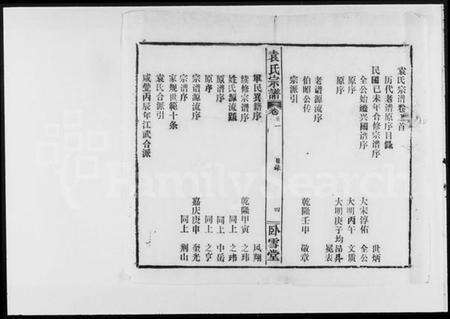 袁氏宗譜卷之首
歷代老譜原序目錄
民國己未年合修宗譜序 世炳
全公始遷興國譜序 大宋淳佑 全公
原序 大明丙午 文質
原序 大明庚子均昂斗冕表
老譜源流序
伯昭公传 乾隆壬申 敬章
宗派引
袁氏宗譜 卷之一 目錄 四 臥雪堂
軍民異籍序 風翔
續修宗譜序 乾隆甲寅 之瑋
姓氏源流 同上 之瑋
原譜序 同上 中岳
原序 同上 之亨
宗譜源流序 嘉庆庚申 奎光
宗譜序 同上 荆山
家規世範十条
袁氏合派引
咸豐丙辰年江武合派
FamilySearch